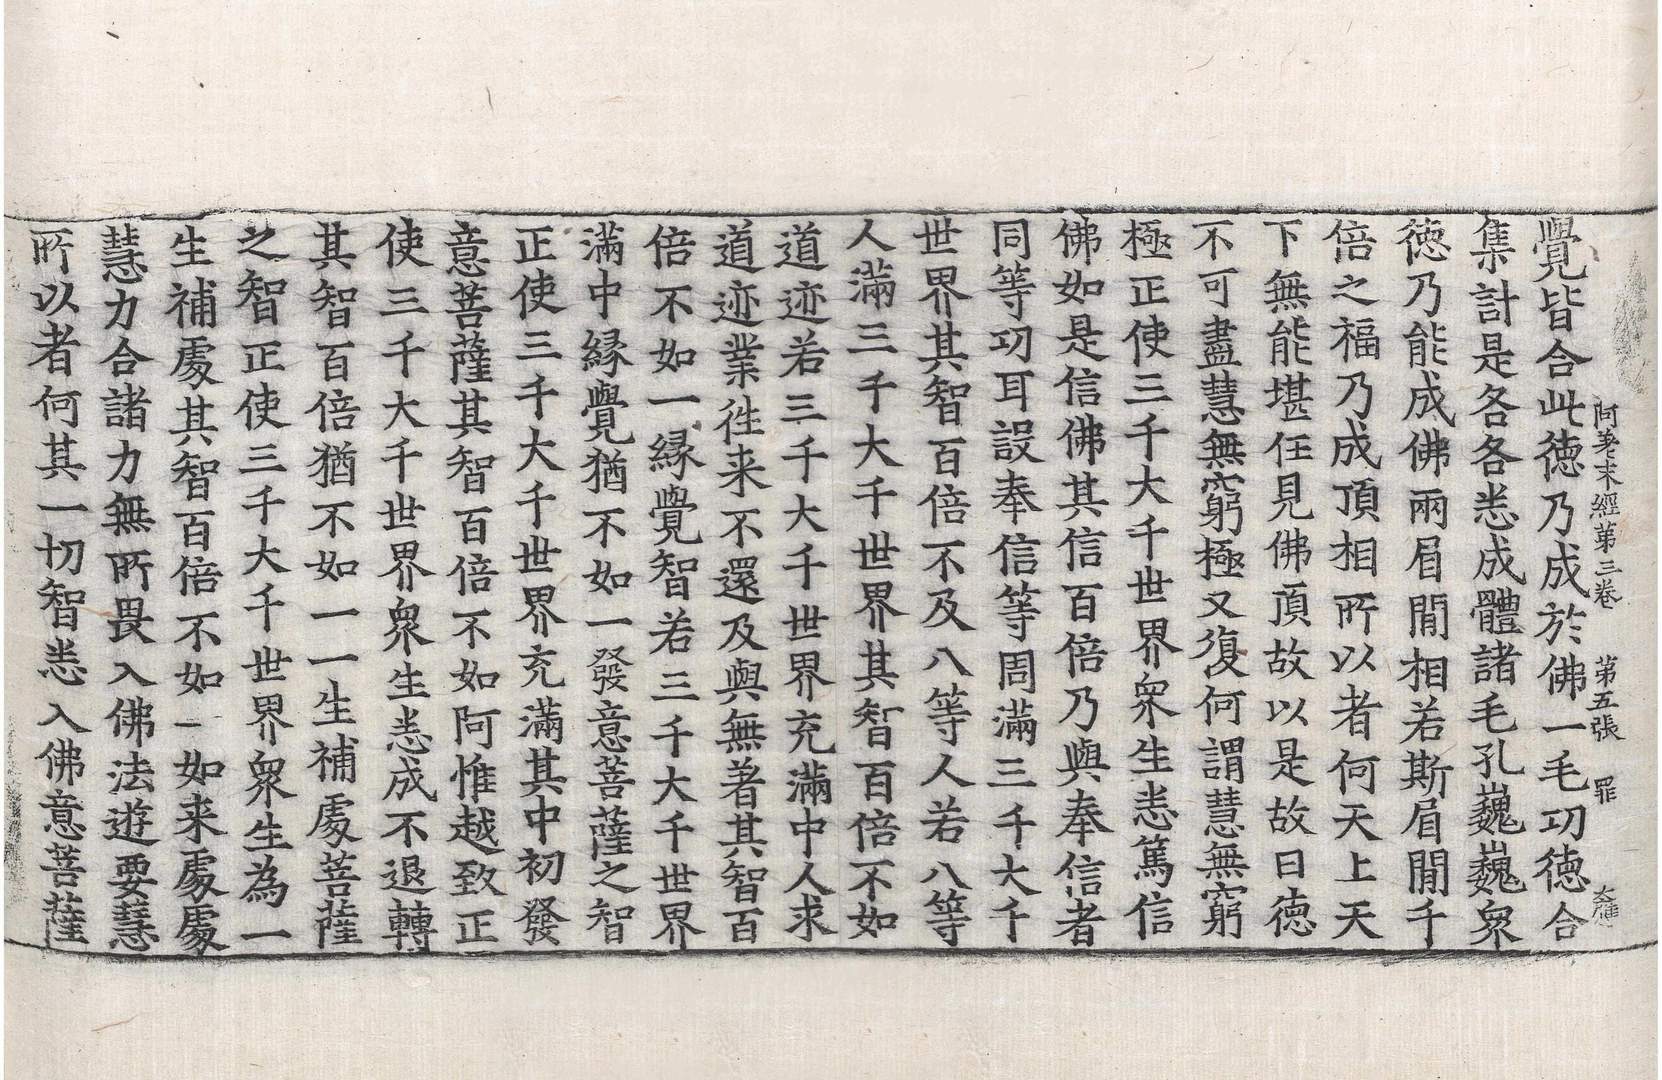 阿差末經第三卷　第五張　罪　大進
覺皆合此徳乃成於佛一毛功徳合
集計是各各悉成體諸毛孔巍巍衆
徳乃能成佛兩眉閒相若斯眉閒千
倍之福乃成頂相所以者何天上天
下無能堪任見佛頂故以是故曰徳
不可盡慧無窮極又復何謂慧無窮
極正使三千大千世界衆生悉篤信
佛如是信佛其信百倍乃與奉信者
同等功耳設奉信等周滿三千大千
世界其智百倍不及八等人若八等
人滿三千大千世界其智百倍不如
道迹若三千大千世界充滿中人求
道迹業徃来不還及與無著其智百
倍不如一縁覺智若三千大千世界
滿中縁覺猶不如一發意菩薩之智
正使三千大千世界充滿其中初發
意菩薩其智百倍不如阿惟越致正
使三千大千世界衆生悉成不退轉
其智百倍猶不如一一生補處菩薩
之智正使三千大千世界衆生為一
生補處其智百倍不如一如来處處
慧力合諸力無所畏入佛法遊要慧
所以者何其一切智悉入佛意菩薩